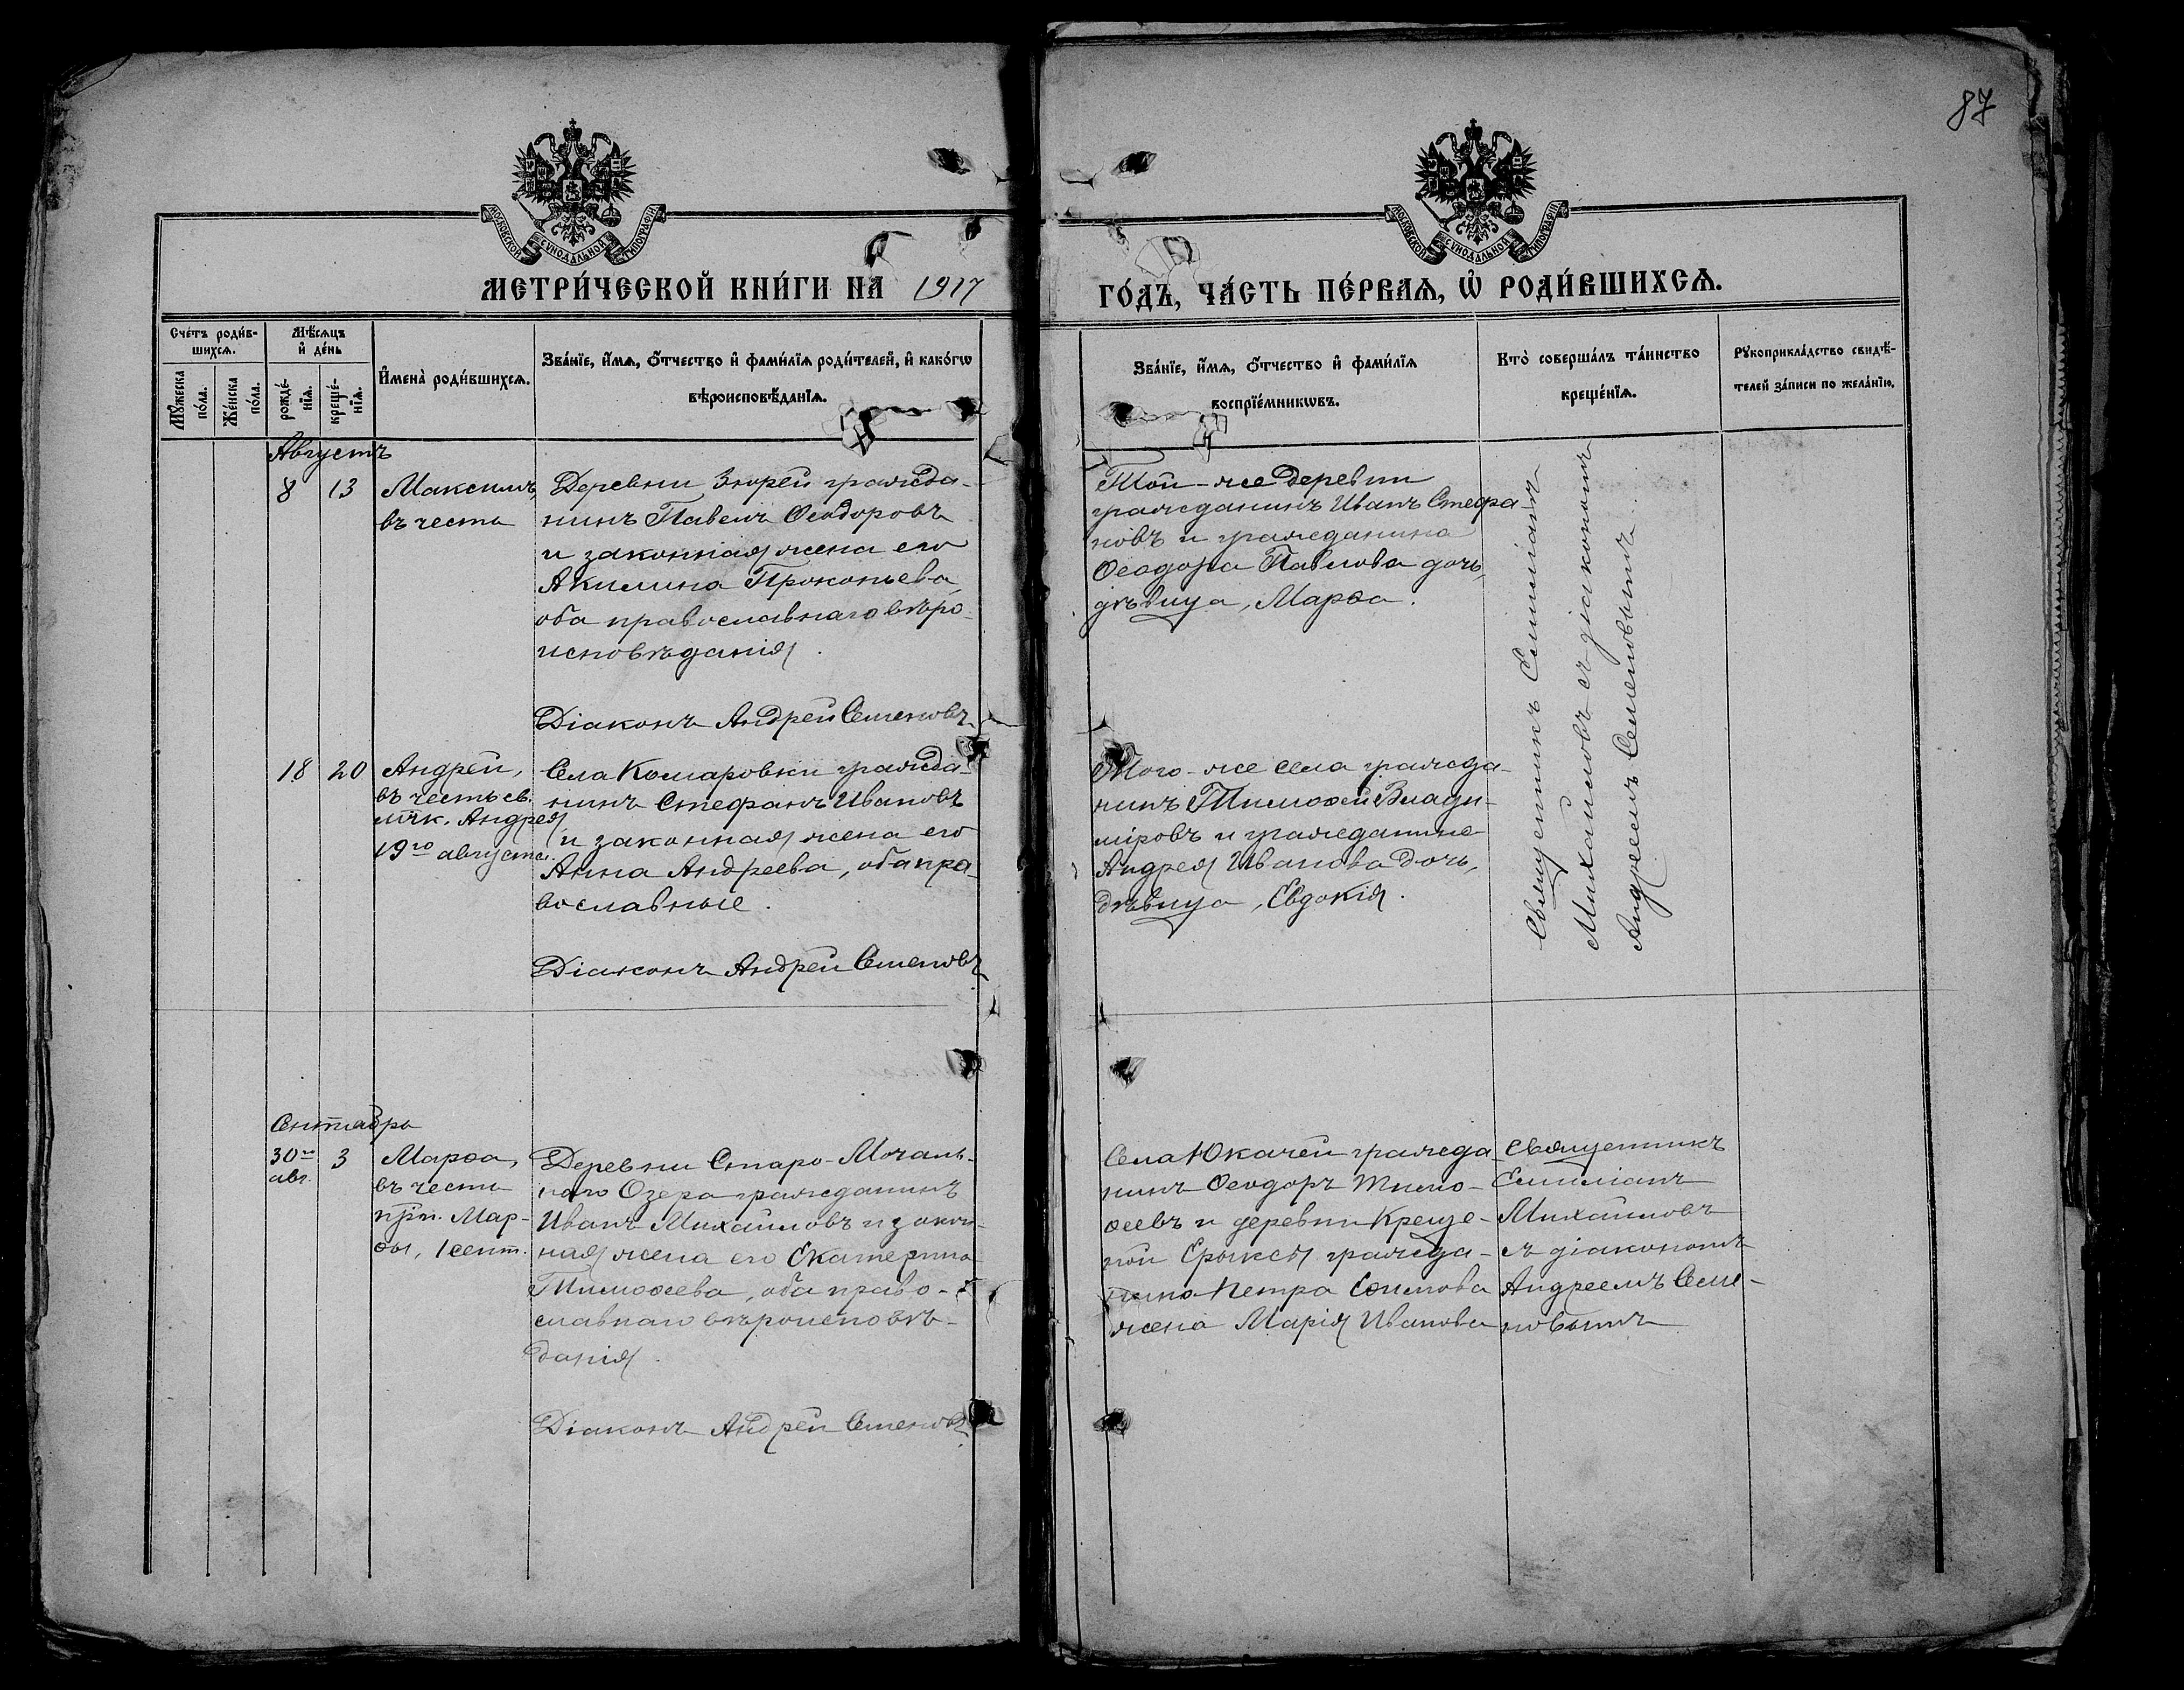 87
МОСКОВСКОЙ СѴНОДАЛЬНОЙ ТИПОГРАФІИ
МОСКОВСКОЙ СѴНОДАЛЬНОЙ ТИПОГРАФІИ
МЕТРИ́ЧЕСКОЙ КНИ́ГИ НА 1917
ГО́ДЪ, ЧА́СТЬ ПЕ́РВАѦ, Ѡ҆ РОДИ́ВШИХСѦ.
Сче́тъ роди́в-
шихсѧ.
Мꙋ́жеска
по́ла.
Же́нска
по́ла.
Мѣ́сѧцъ
и҆ де́нь
рожде́-
нїѧ.
креще́-
нїѧ.
И҆мена̀ роди́вшихсѧ.
Зва́нїе, и҆́мѧ, ѻ҆́тчество и҆ фами́лїѧ роди́телей, и҆ како́гѡ
вѣроисповѣ́данїѧ.
Зва́нїе, и҆́мѧ, ѻ҆́тчество и҆ фами́лїѧ
воспрїе́мникѡвъ.
Кто̀ соверша́лъ та́инство
креще́нїѧ.
Рꙋкоприкла́дство свидѣ́-
телей за́писи по жела́нїю.
Августъ
8 13
Максимъ,
въ честь
Деревни Зюрей гражда-
нинъ Павелъ Ѳеодоровъ
и законная жена его
Акилина Прокопьева,
оба православнаго вѣро-
исповѣданія.
Діаконъ Андрей Семеновъ
Той-же деревни
гражданинъ Иванъ Стефа-
новъ и гражданина
Ѳеодора Павлова дочь,
дѣвица, Марѳа.
Священникъ Емиліанъ
Михайловъ съ діакономъ
Андреемъ Семеновымъ
18 20
Андрей,
въ честь св.
мчк. Андрея
19го августа.
Села Комаровки гражда-
нинъ Стефанъ Ивановъ
и законная жена его
Анна Андреева, оба пра-
вославные.
Діаконъ Андрей Семеновъ
Того-же села гражда-
нинъ Тимоѳей Влади-
міровъ и гражданина
Андрея Иванова дочь,
дѣвица, Евдокія.
Сентябрь
30го
авг.
3
Марѳа,
въ честь
прп. Мар-
ѳы, 1 сент.
Деревни Старо-Мочаль-
наго Озера гражданинъ
Иванъ Михайловъ и закон-
ная жена его Екатерина
Тимоѳеева, оба право-
славнаго вѣроисповѣ-
данія.
Діаконъ Андрей Семеновъ
Села Юкачей гражда-
нинъ Ѳеодоръ Тимо-
ѳеевъ и деревни Креще-
ной Ерыксы гражда-
нина Петра Ефимова
жена Марія Иванова
Священникъ
Емиліанъ
Михайловъ
съ діакономъ
Андреемъ Семе-
новымъ